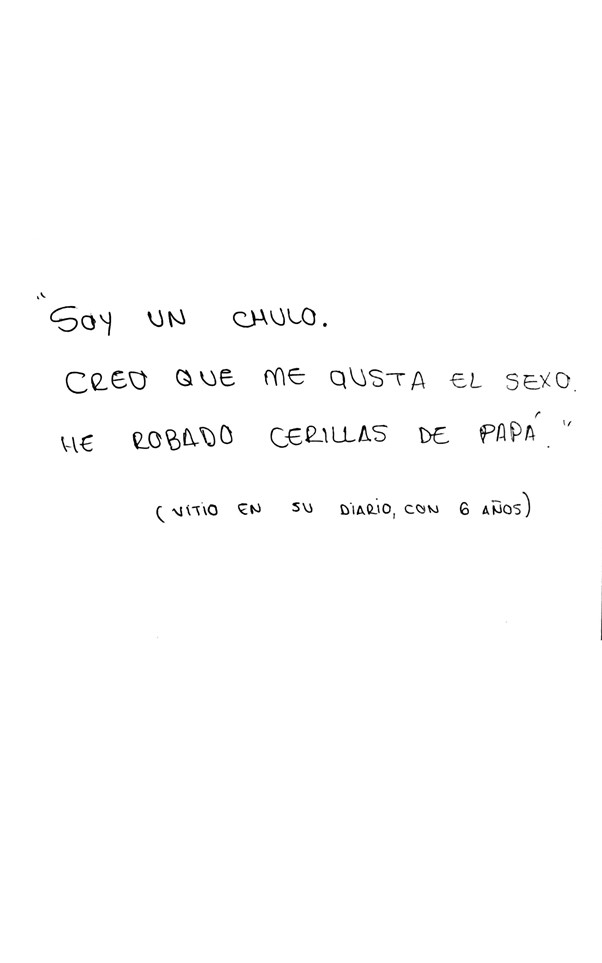 "Soy UN CHULO.
CREO QUE ME GUSTA EL SEXO.
HE ROBADO CERILLAS DE PAPÁ."
(VITIO EN SU DIARIO, CON 6 AÑOS)